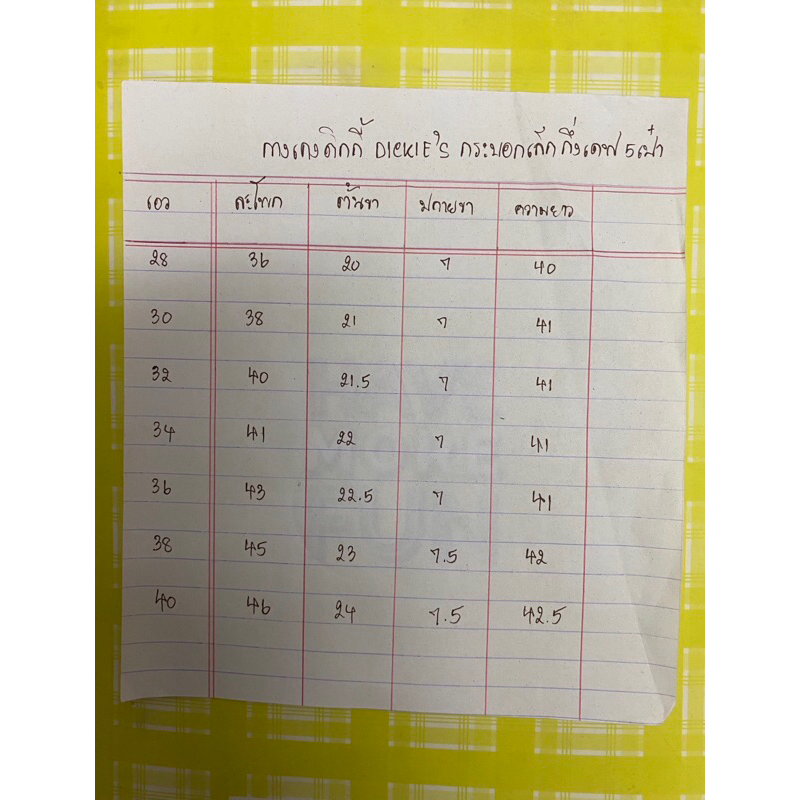 กางเกงดิกกี้ DICKIE'S กระบอกเล็ก กึ่งเดฟ 5เป๋า
เอว สะโพก ต้นขา ปลายขา ความยาว
28 36 20 7 40
30 38 21 7 41
32 40 21.5 7 41
34 41 22 7 41
36 43 22.5 7 41
38 45 23 7.5 42
40 46 24 7.5 42.5